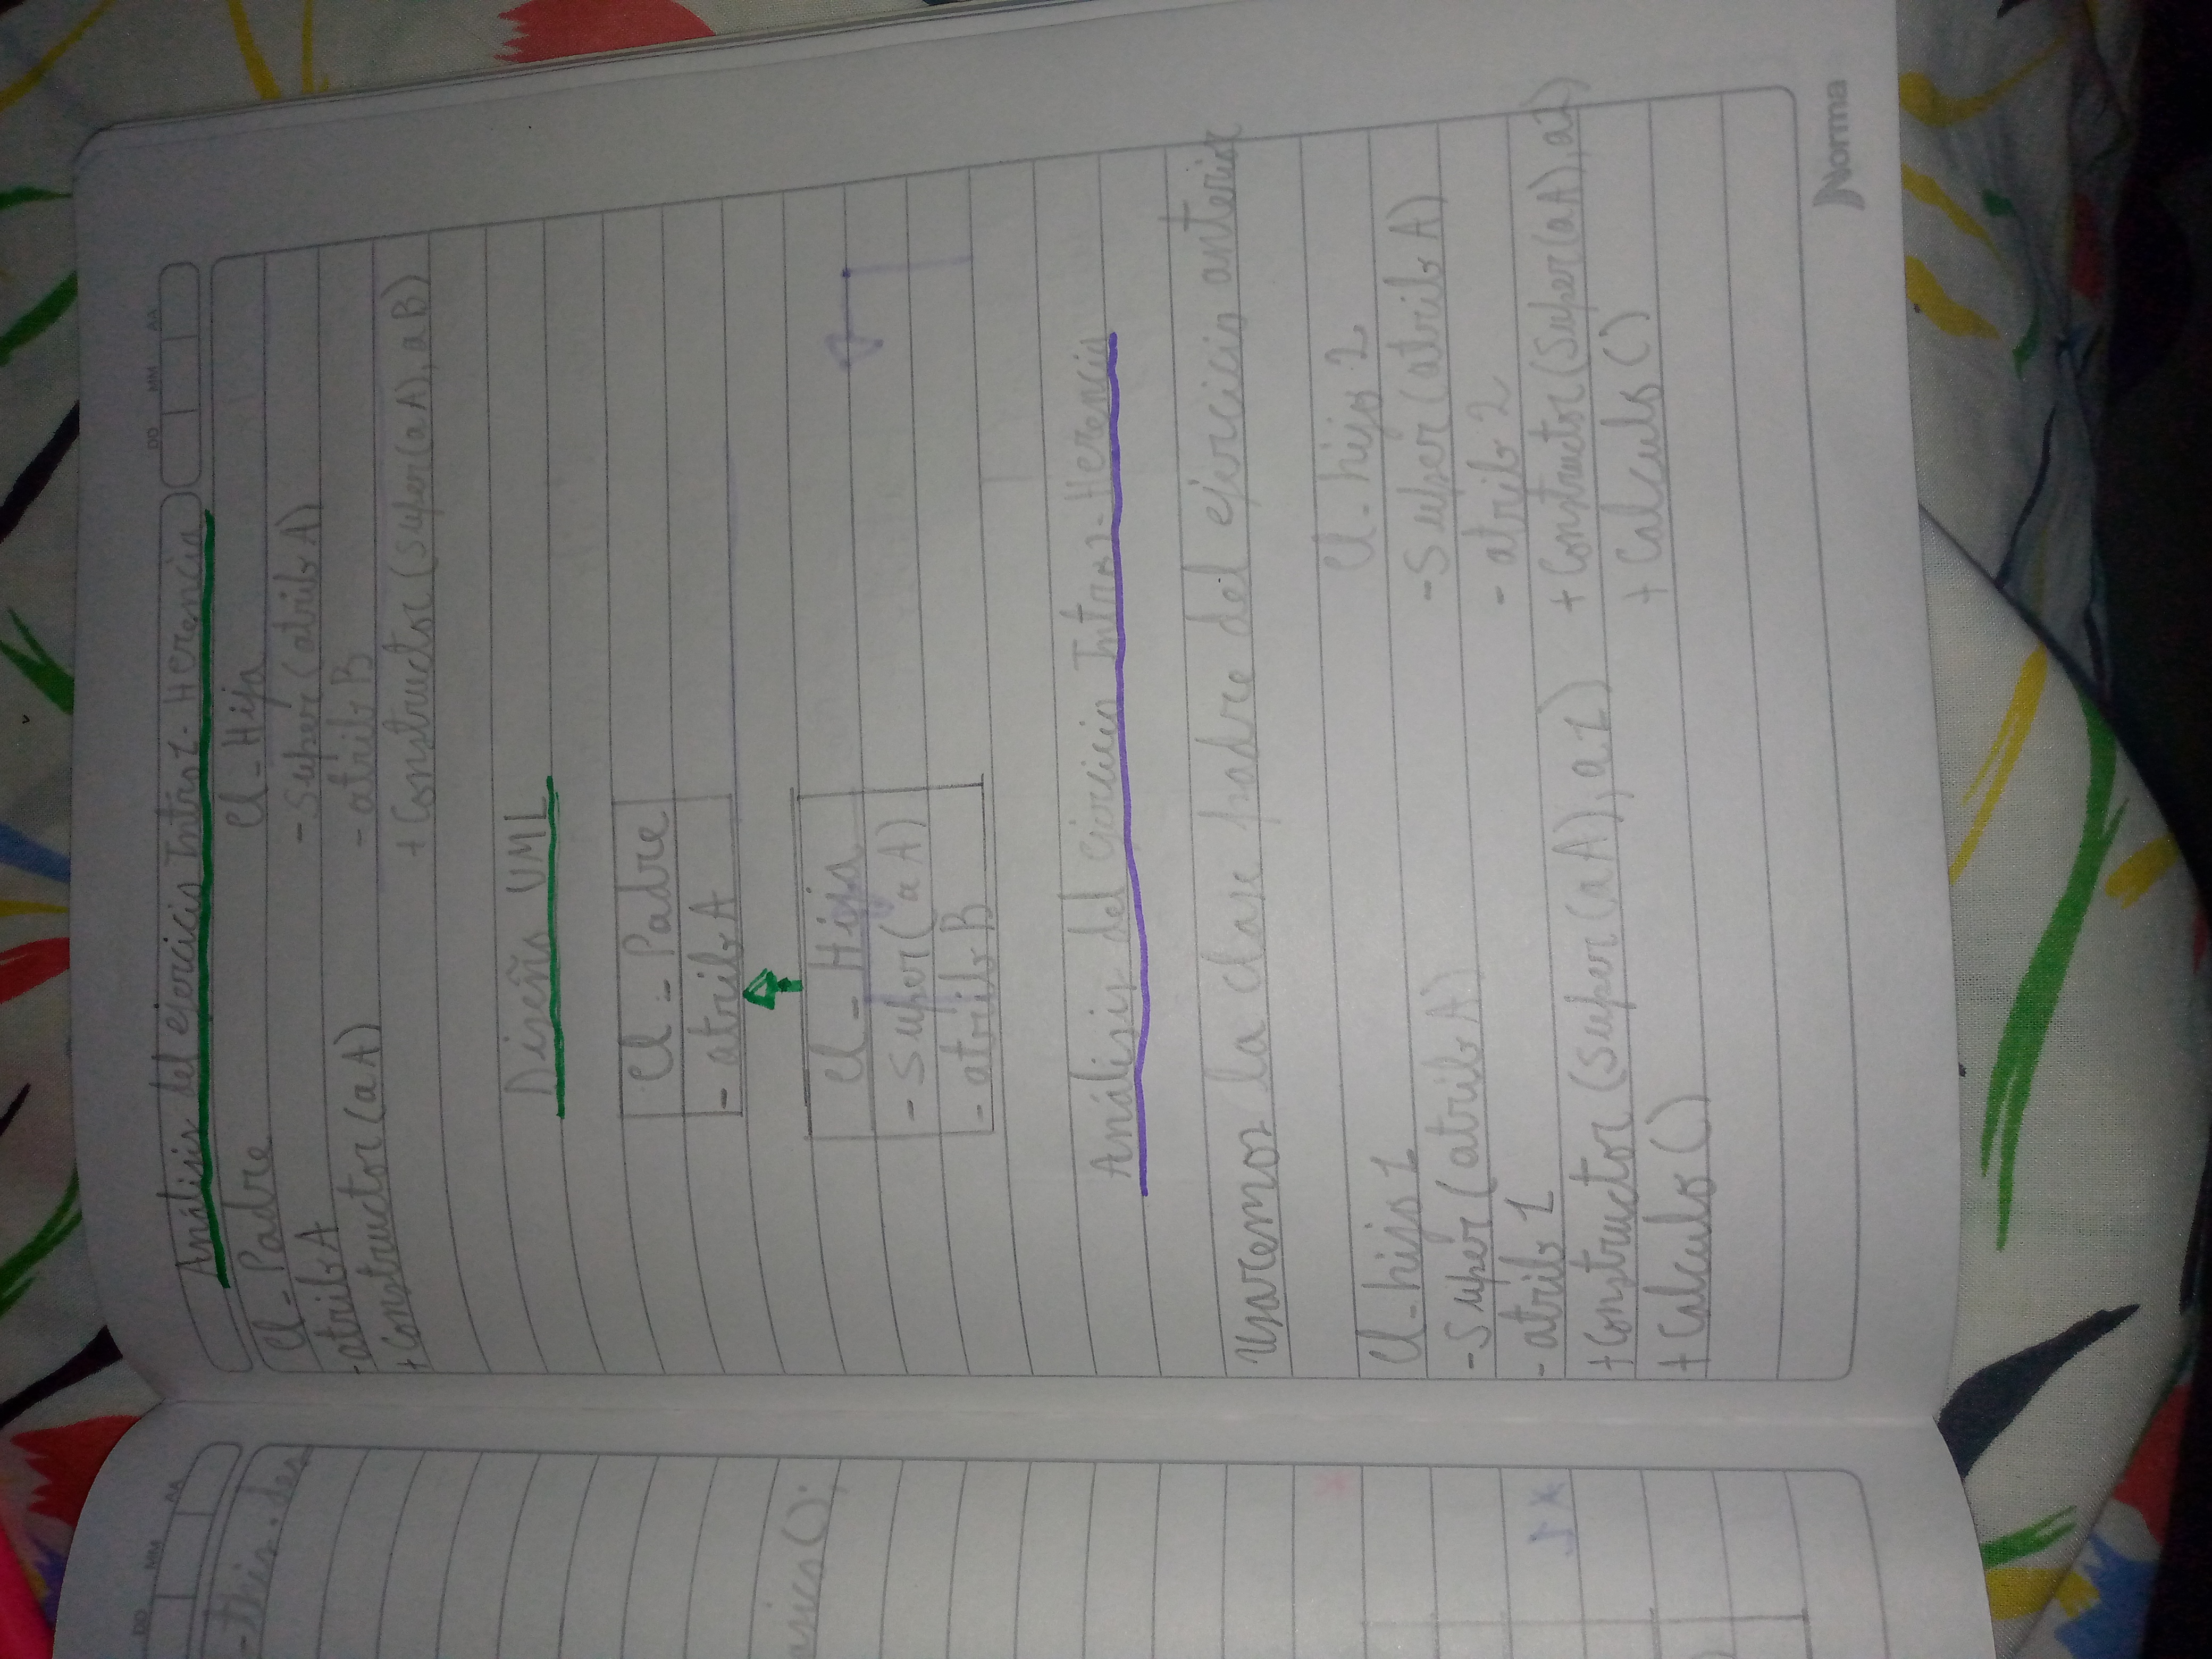 DD MM AA
- this.des
asico();
* 1
DD MM AA
Análisis del ejercicio Intro 1 - Herencia
Cl - Padre
- atrib A
+ Constructor (a A)
Cl - Hija
- Super (atrib A)
- atrib B
+ Constructor (Super(a A), a B)
Diseño UML
Cl - Padre
- atrib A
Cl - Hija
- Super (a A)
- atrib B
Análisis del ejercicio - Herencia
Usaremos la clase padre del ejercicio anterior
Cl - hijo 1
- Super (atrib A)
- atrib 1
+ Constructor (Super (a A), a 1)
+ Calculo ()
Cl - hijo 2
- Super (atrib A)
- atrib 2
+ Constructor (Super (a A), a 2)
+ Calculo ()
Norma